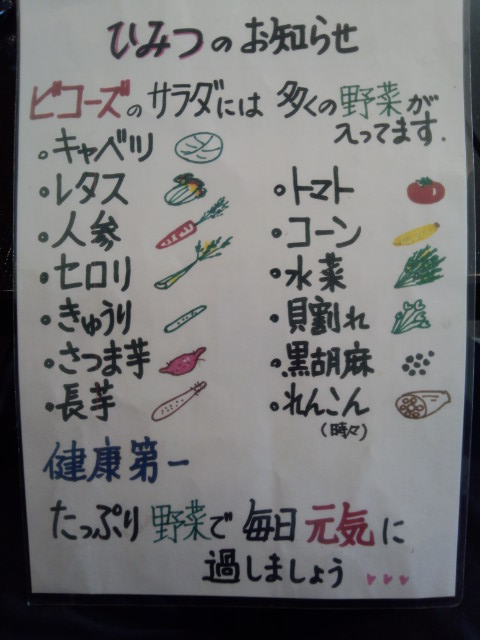 ひみつのお知らせ
ビコーズのサラダには多くの野菜が
入ってます.
・キャベツ
・レタス
・人参
・セロリ
・きゅうり
・さつま芋
・長芋
・トマト
・コーン
・水菜
・貝割れ
・黒胡麻
・れんこん
(時々)
健康第一
たっぷり野菜で毎日元気に
過しましょう